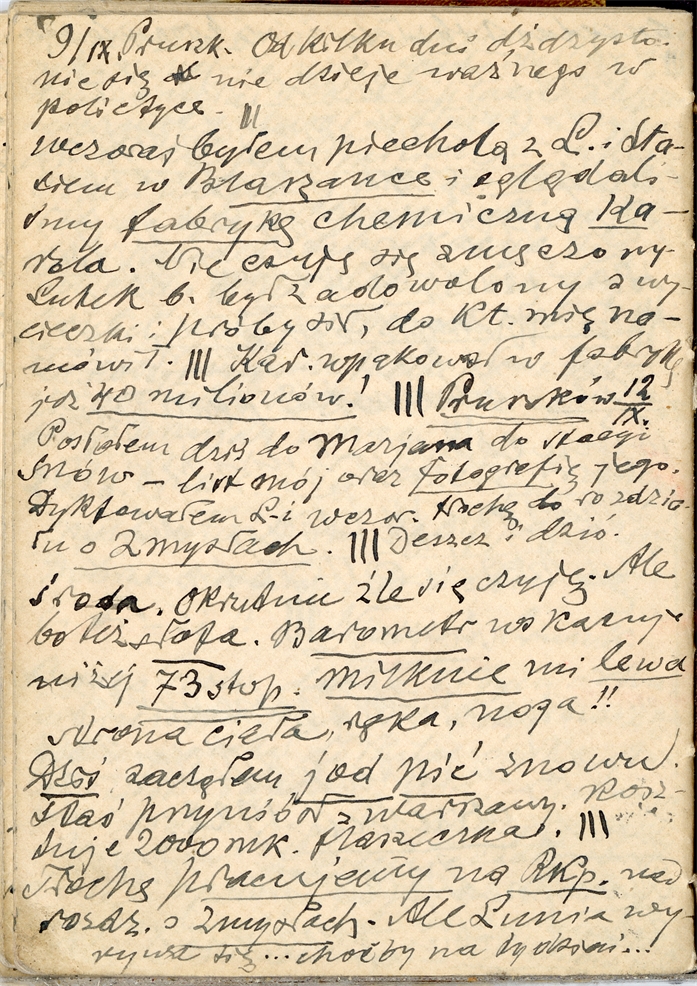 9/IX. Pruszk. Od kilku dni dżdżysto.
nic się nie dzieje ważnego w
polityce. |||
wczoraj byłem piechotą z L. i Sta-
siem w Żbarzance i oglądali-
śmy fabrykę chemiczną Ka-
rola. Nie czuję się zmęczony
Lutek b. był zadowolony z wy-
cieczki i próby sił, do kt. mię na-
mówił. ||| Kar. wpakował w fabrykę
już 40 milionów! ||| Pruszków 12/IX.
Posłałem dziś do Marjana do
Snów – list mój oraz fotografię jego.
Dyktowałem L-i wczor. trochę do rozdzia-
łu o Zmysłach. ||| Deszcz i dziś.
środa. Okrutnie źle się czuję. Ale
bo też słota. Barometr wskazuje
niżej 73 stop. Milknie mi lewa
strona ciała, ręka, noga!!
Dziś zacząłem jod pić znowu.
Staś przyniósł z Warszawy. Kosz-
tuje 2000 mk. flaszeczka. |||
Trochę pracujemy na RKp. nad
rozdz. o Zmysłach. Ale Lunia wy-
rywa się... choćby na tydzień...